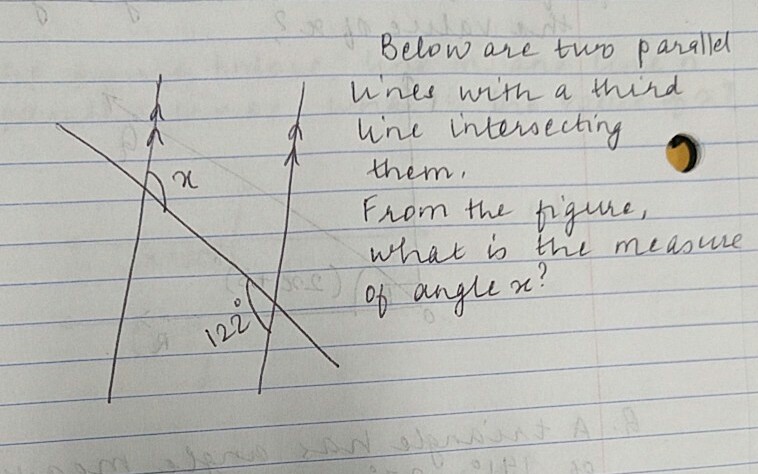 Below are two parallel
lines with a third
line intersecting
them.
From the figure,
what is the measure
of angle x?
x
122°